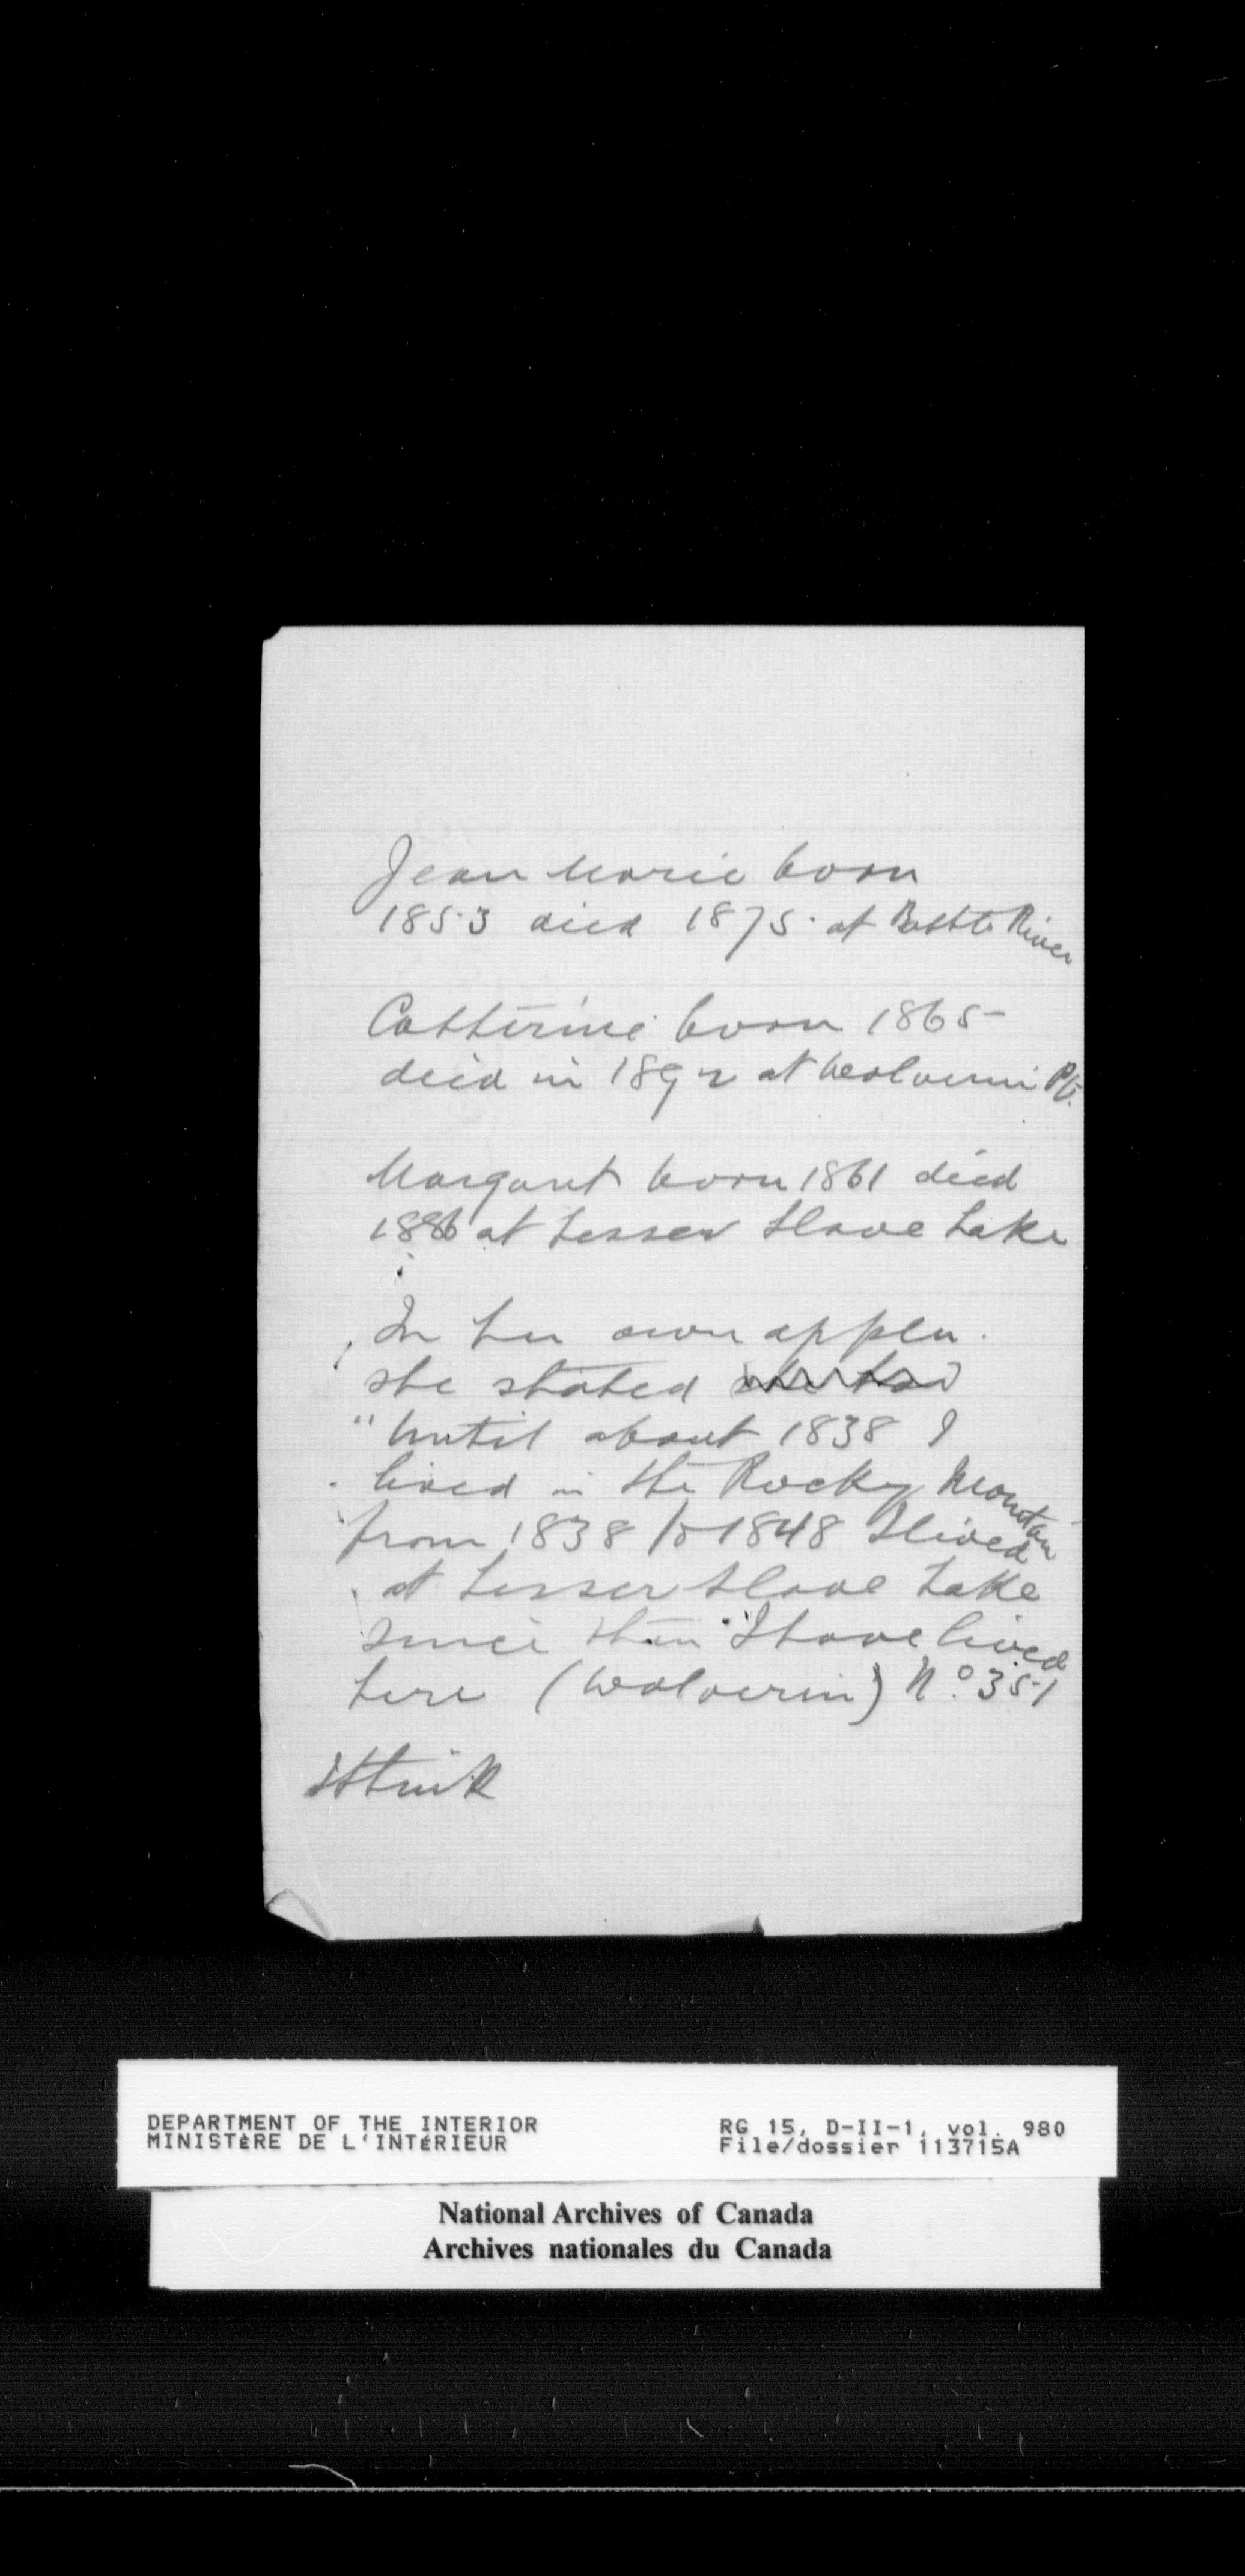 Jean Marie born
1853 died 1875 at Battle River
Catherine born 1865
died in 1892 at Wolverine Pt.
Margaret born 1861 died
1886 at Lesser Slave Lake
In her own appln.
she stated she had
"Until about 1838 I
lived in the Rocky Mountain
from 1838 to 1848 I lived
at Lesser Slave Lake
Since then I have lived
here (Wolverin) No. 351
DEPARTMENT OF THE INTERIOR
MINISTÈRE DE L'INTÉRIEUR
RG 15, D-II-1, vol. 980
File/dossier 113715A
National Archives of Canada
Archives nationales du Canada